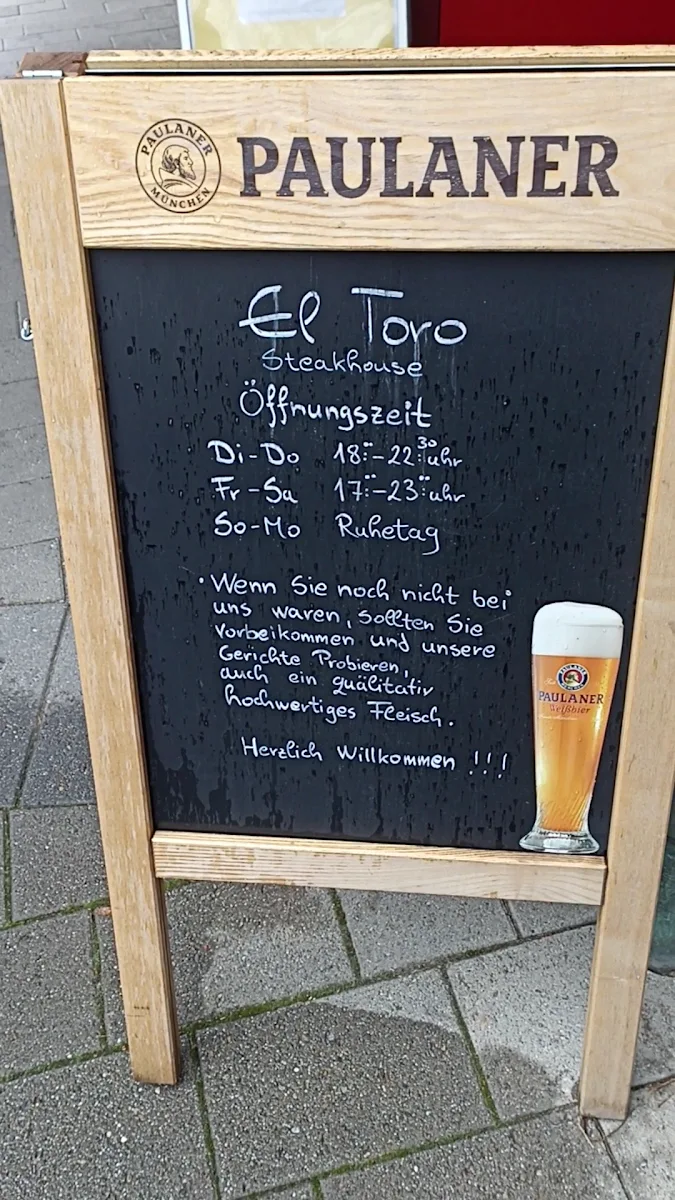 PAULANER
MÜNCHEN
PAULANER
El Toro
Steakhouse
Öffnungszeit
Di-Do 18:00-22:30 uhr
Fr-Sa 17:00-23:00 uhr
So-Mo Ruhetag
• Wenn Sie noch nicht bei
uns waren, sollten Sie
vorbeikommen und unsere
Gerichte Probieren,
auch ein quälitativ
hochwertiges Fleisch.
Herzlich Willkommen !!!
PAULANER
PAULANER
Weißbier